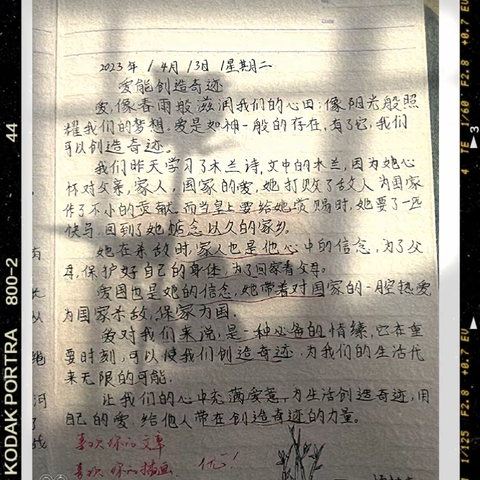 2023年 4月 13日 星期二
爱能创造奇迹
爱,像春雨般滋润我们的心田;像阳光般照
耀我们的梦想,爱是如神一般的存在,有了它,我们
可以创造奇迹。
我们昨天学习了木兰诗,文中的木兰,因为她心
怀对父亲,家人,国家的爱,她打败了敌人为国家
作了不小的贡献,而当皇上要给她赏赐时,她要了一匹
快马,回到了她惦念以久的家乡。
她在杀敌时,家人也是他心中的信念,为了父
母,保护好自己的身体,为了回家看父母。
爱国也是她的信念,她带着对国家的一腔热爱
为国家杀敌,保家为国。
爱对我们来说,是一种必备的情绪,它在重
要时刻,可以使我们创造奇迹,为我们的生活代
来无限的可能。
让我们的心中充满爱意,为生活创造奇迹,用
自己的爱,给他人带在创造奇迹的力量。
喜欢你的文章
喜欢你的插画 优!
KODAK PORTRA 800-2 44
1/60 F2.8 +0.7 EU
1/125 F2.8 +0.7 EU